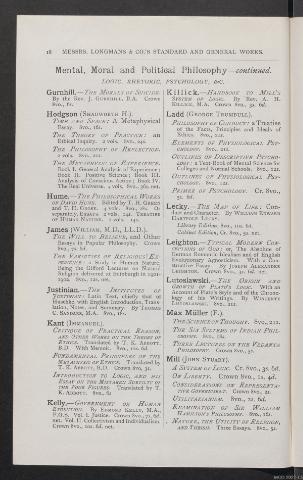 18 MESSRS. LONGMANS & CO.'S STANDARD AND GENERAL WORKS.
Mental, Moral and Political Philosophy—continued.
LOGIC, RHETORIC, PSYCHOLOGY, &C.
Gurnhill.—THE MORALS OF SUICIDE.
By the Rev. J. GURNHILL, B.A. Crown
8vo., 6s.
Hodgson (SHADWORTH H.).
TIME AND SPACE: A Metaphysical
Essay. 8vo., 16s.
THE THEORY OF PRACTICE: an
Ethical Inquiry. 2 vols. 8vo., 24s.
THE PHILOSOPHY OF REFLECTION.
2 vols. 8vo., 21s.
THE METAPHYSIC OF EXPERIENCE.
Book I. General Analysis of Experience;
Book II. Positive Science; Book III.
Analysis of Conscious Action; Book IV.
The Real Universe. 4 vols. 8vo., 36s. net.
Hume.—THE PHILOSOPHICAL WORKS
OF DAVID HUME. Edited by T. H. GREEN
and T. H. GROSE. 4 vols. 8vo., 28s. Or
separately, ESSAYS. 2 vols. 14s. TREATISE
OF HUMAN NATURE. 2 vols. 14s.
James (WILLIAM, M.D., LL.D.).
THE WILL TO BELIEVE, and Other
Essays in Popular Philosophy. Crown
8vo., 7s. 6d.
THE VARIETIES OF RELIGIOUS EXPERIENCE:
a Study in Human Nature.
Being the Gifford Lectures on Natural
Religion delivered at Edinburgh in 1901-
1902. 8vo., 12s. net.
Justinian.—THE INSTITUTES OF
JUSTINIAN: Latin Text, chiefly that of
Huschke, with English Introduction, Translation,
Notes, and Summary. By THOMAS
C. SANDARS, M.A. 8vo., 18s.
Kant (IMMANUEL).
CRITIQUE OF PRACTICAL REASON,
AND OTHER WORKS ON THE THEORY OF
ETHICS. Translated by T. K. ABBOTT,
B.D. With Memoir. 8vo., 12s. 6d.
FUNDAMENTAL PRINCIPLES OF THE
METAPHYSIC OF ETHICS. Translated by
T. K. ABBOTT, B.D. Crown 8vo., 3s.
INTRODUCTION TO LOGIC, AND HIS
ESSAY ON THE MISTAKEN SUBTILTY OF
THE FOUR FIGURES. Translated by T.
K. ABBOTT. 8vo., 6s.
Kelly.—GOVERNMENT OR HUMAN
EVOLUTION. By EDMOND KELLY, M.A.,
F.G.S. Vol. I. Justice. Crown 8vo., 7s. 6d.
net. Vol. II. Collectivism and Individualism.
Crown 8vo., 10s. 6d. net.
Killick.—HANDBOOK TO MILL'S
SYSTEM OF LOGIC. By Rev. A. H.
KILLICK, M.A. Crown 8vo., 3s. 6d.
Ladd (GEORGE TRUMBULL).
PHILOSOPHY OF CONDUCT: a Treatise
of the Facts, Principles and Ideals of
Ethics. 8vo., 21s.
ELEMENTS OF PHYSIOLOGICAL PSYCHOLOGY.
8vo., 21s.
OUTLINES OF DESCRIPTIVE PSYCHOLOGY:
a Text-Book of Mental Science for
Colleges and Normal Schools. 8vo., 12s.
OUTLINES OF PHYSIOLOGICAL PSYCHOLOGY.
8vo., 12s.
PRIMER OF PSYCHOLOGY. Cr. 8vo.,
5s. 6d.
Lecky.—THE MAP OF LIFE: Conduct
and Character. By WILLIAM EDWARD
HARTPOLE LECKY.
Library Edition, 8vo., 10s. 6d.
Cabinet Edition, Cr. 8vo., 5s. net.
Leighton.—TYPICAL MODERN CONCEPTIONS
OF GOD; or, The Absolute of
German Romantic Idealism and of English
Evolutionary Agnosticism. With a Constructive
Essay. By JOSEPH ALEXANDER
LEIGHTON. Crown 8vo., 3s. 6d. net.
Lutoslawski.—THE ORIGIN AND
GROWTH OF PLATO'S LOGIC. With an
Account of Plato's Style and of the Chronology
of his Writings. By WINCENTY
LUTOSLAWSKI. 8vo., 21s.
Max Müller (F.).
THE SCIENCE OF THOUGHT. 8vo., 21s.
THE SIX SYSTEMS OF INDIAN PHILOSOPHY.
8vo., 18s.
THREE LECTURES ON THE VEDANTA
PHILOSOPHY. Crown 8vo., 5s.
Mill (JOHN STUART).
A SYSTEM OF LOGIC. Cr. 8vo., 3s. 6d.
ON LIBERTY. Crown 8vo., 1s. 4d.
CONSIDERATIONS ON REPRESENTATIVE
GOVERNMENT. Crown 8vo., 2s.
UTILITARIANISM. 8vo., 2s. 6d.
EXAMINATION OF SIR WILLIAM
HAMILTON'S PHILOSOPHY. 8vo., 16s.
NATURE, THE UTILITY OF RELIGION,
AND THEISM. Three Essays. 8vo., 5s.